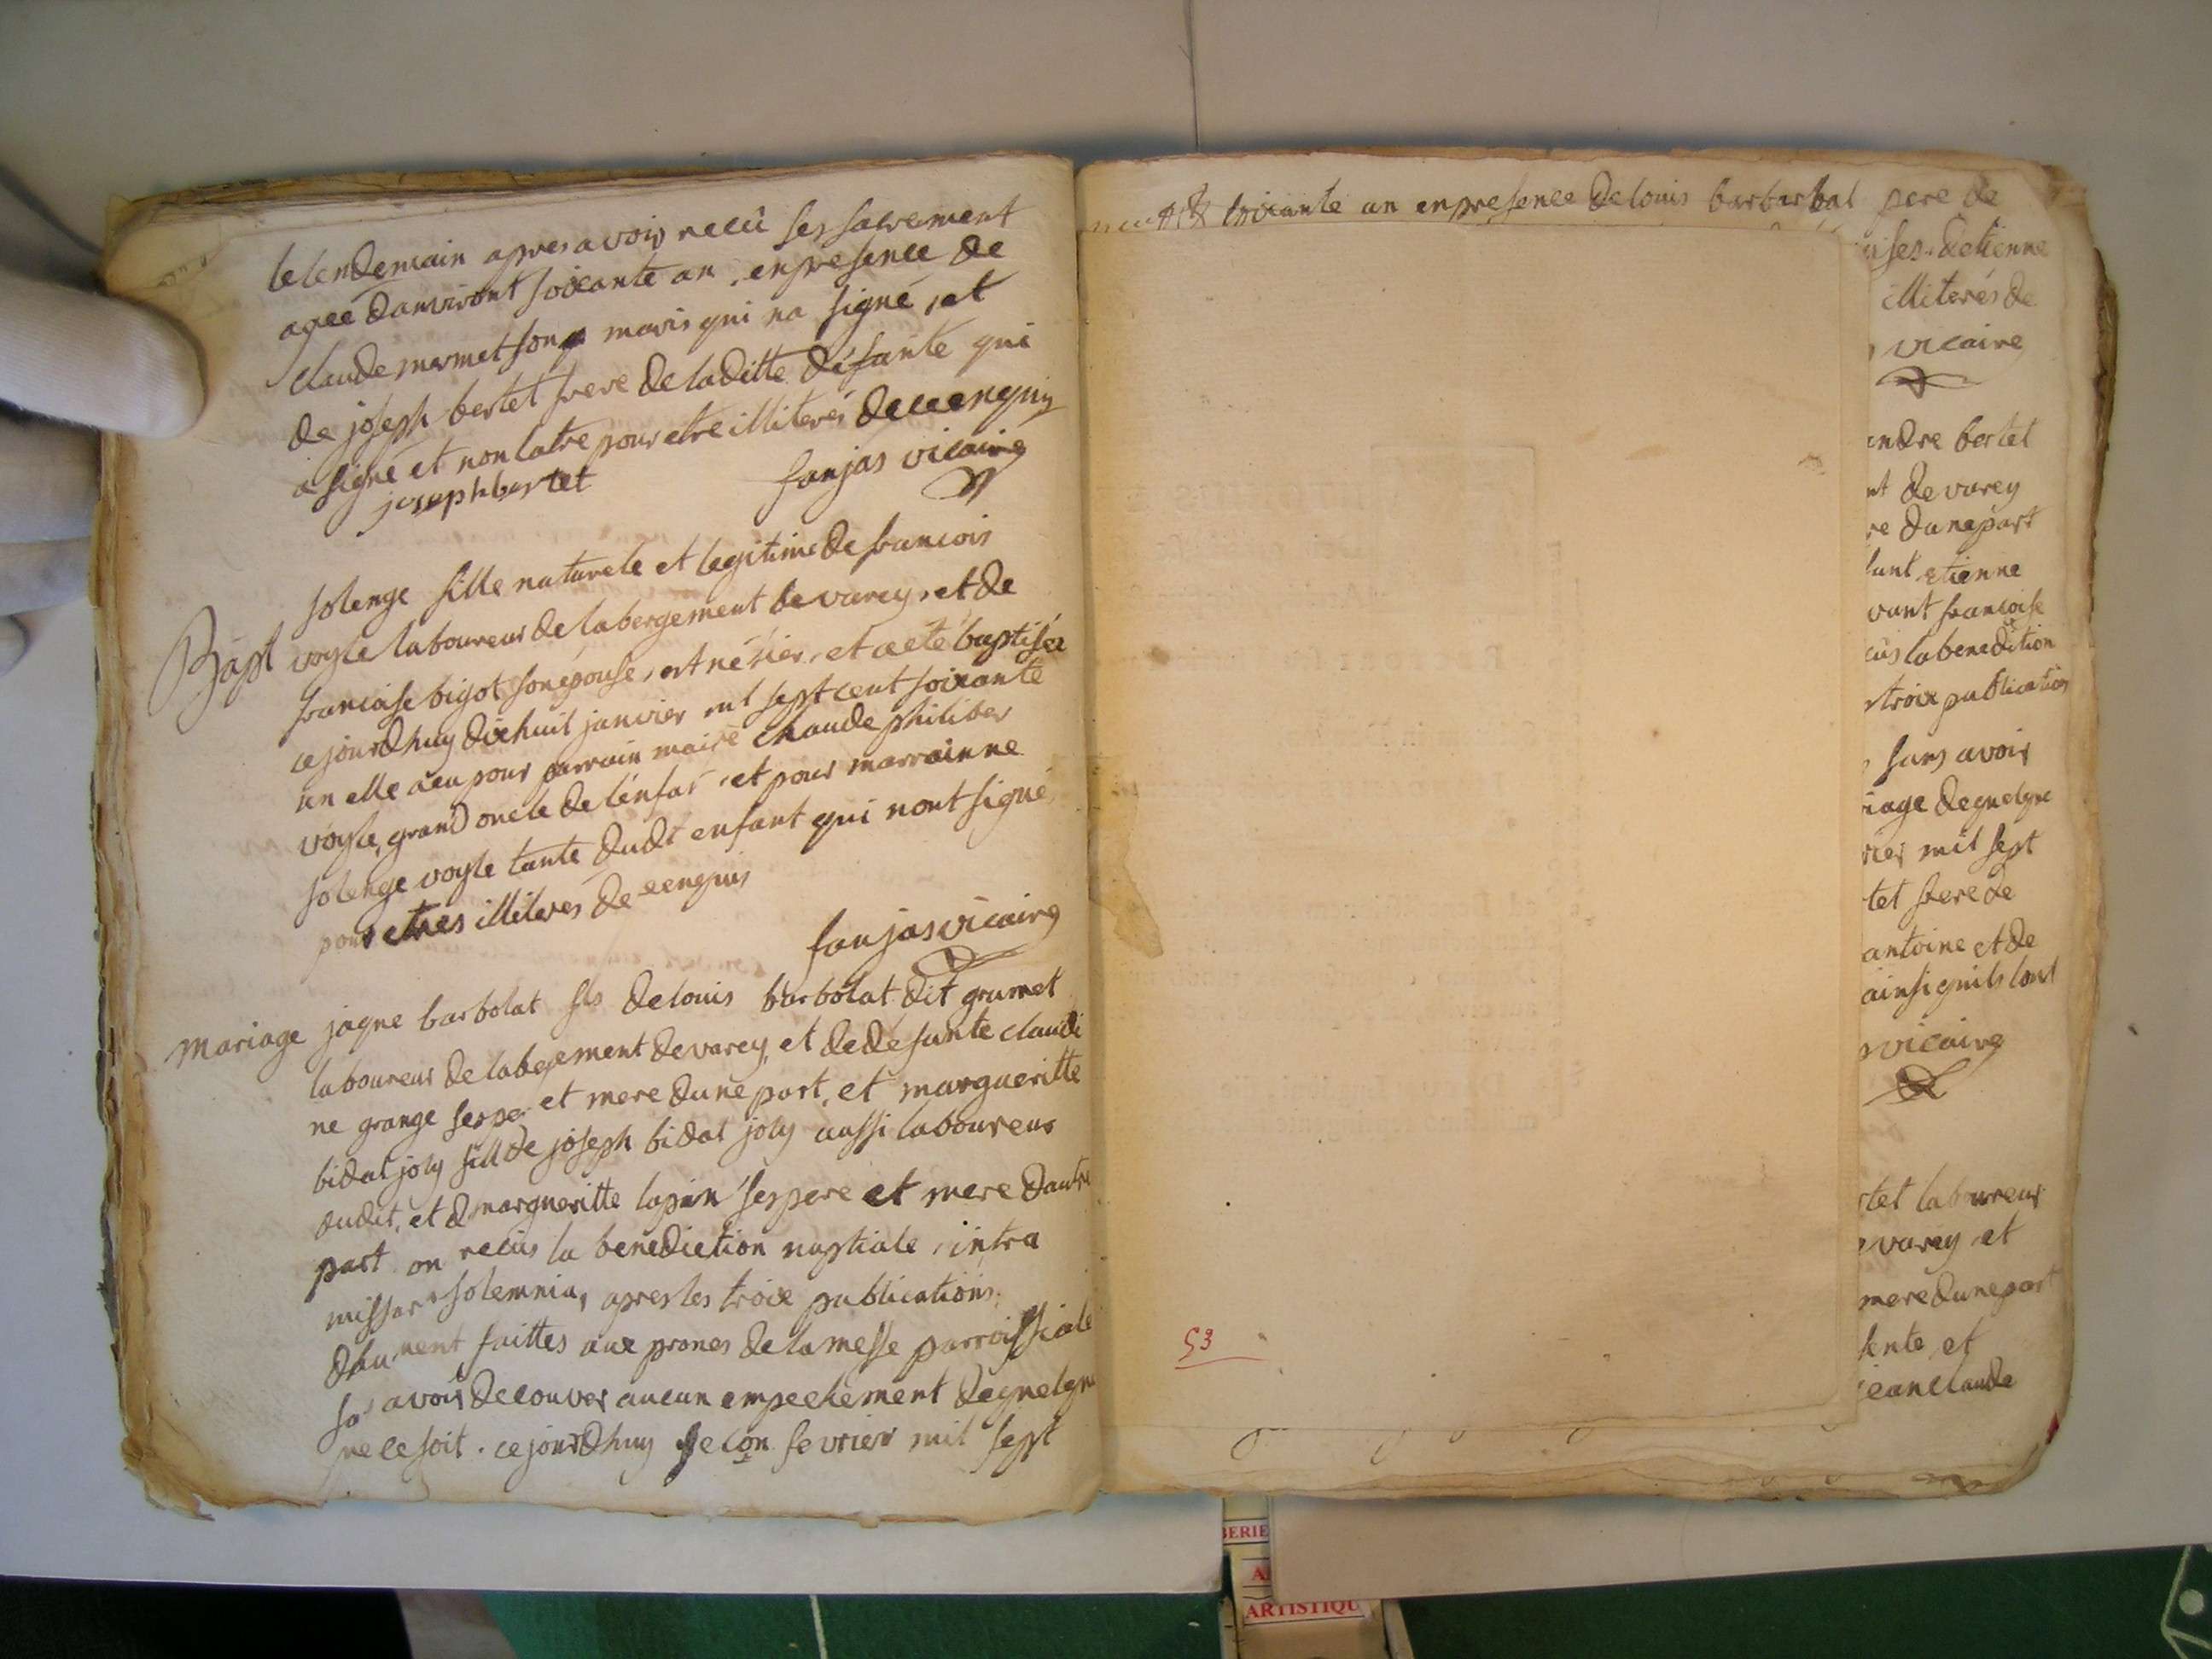 le lendemain apres avoir recû ses sacrement
agée danviront soixante an, en presence de
claude mermet son maris qui na signé, et
de joseph bertet frere de laditte défunte qui
a signé et non latre pour etre illiterés de ce enquis
joseph bertet faujas vicaire
solenge fille naturele et legitime de francois
Bapt voyle laboureur de labergement de varey, et de
francoise bigot son épouse, est né hier, et a eté baptisée
ce jourdhuy dixhuit janvier mil sept cent soixante
un elle a eu pour parrain maitre claude philiber
voyle, grand oncle de lénfas, et pour marrainne
solenge voyle tante dudt enfant qui nont signé
pour etres illiteres de ce enquis
faujas vicaire
mariage jaque barbolat fils de louis barbolat dit grumet
laboureur de labegement de varey, et de défunte claudi
ne grange ses per et mere dune part, et margueritte
bidat joly fill de joseph bidat joly aussi laboureur
dudit, et d margueritte lapin ses pere et mere dautre
part on recus la benediction nuptiale, intra
missar solemnia, apres les troix publications
dhument faittes aux prones de la messe parroissiale
sas avoir decouver aucun empechement de quelqu
ne ce soit. ce jourdhuy secon fevrier mil sept
soixante un en presence de louis barbarbat pere de
ses detienne
illiterés de
vicaire
andre bertet
nt de varey
re dune part
etienne
vant francoise
cus la benedition
troix publication
sans avoir
iage de quelque
rier mil sept
tet frere de
antoine et de
ainsi quils lont
vicaire
tet laboureur
varey et
mere dune part
sente et
jean claude
53
BERIE
A
ARTISTIQU